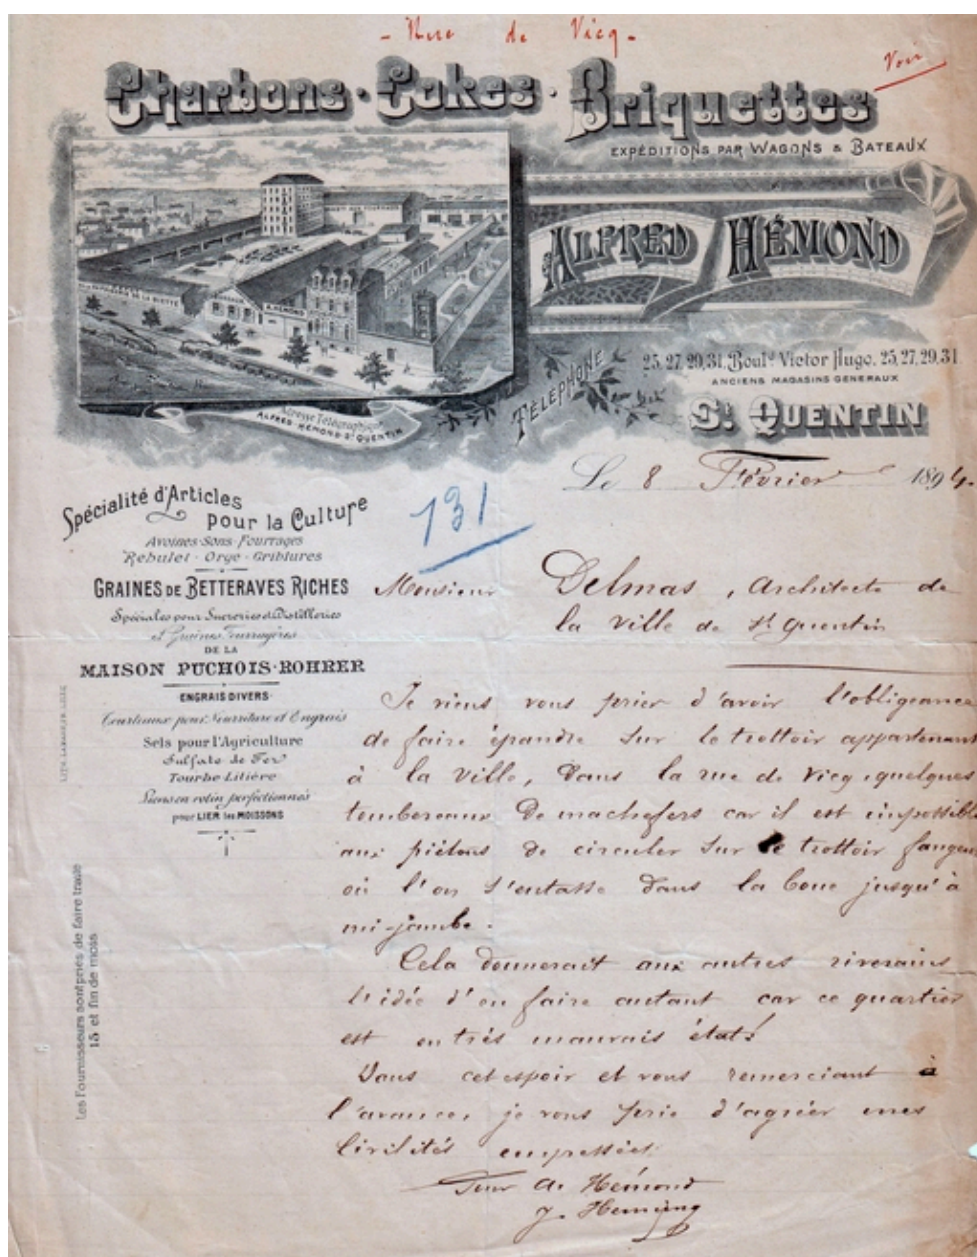 - Rue de Vicq -
Voir
Charbons · Cokes · Briquettes
EXPÉDITIONS PAR WAGONS & BATEAUX
ALFRED HÉMOND
A. HEMOND
TÉLÉPHONE
25, 27, 29, 31, Boulᵈ Victor Hugo, 25, 27, 29, 31.
ANCIENS MAGASINS GENERAUX
Sᵗ QUENTIN
Adresse Télégraphique
ALFRED-HÉMOND-Sᵗ QUENTIN
Le 8 Février 1894.
131
Spécialité d'Articles
pour la Culture
Avoines-Sons-Fourrages
Rebulet - Orge - Griblures
GRAINES DE BETTERAVES RICHES
Spéciales pour Sucreries et Distilleries
et Graines Fourragères
DE LA
MAISON PUCHOIS-ROHRER
ENGRAIS DIVERS
Tourteaux pour Nourriture et Engrais
Sels pour l'Agriculture
Sulfate de Fer
Tourbe Litière
Liens en rotin perfectionnés
pour LIER les MOISSONS
Les Fournisseurs sont priés de faire traite
15 et fin de mois
Monsieur Delmas, Architecte de
la Ville de St Quentin
Je viens vous prier d'avoir l'obligeance
de faire épandre sur le trottoir appartenant
à la Ville, dans la rue de Vicq, quelques
tombereaux de machefers car il est impossible
aux piétons de circuler sur le trottoir fangeux
où l'on s'entasse dans la boue jusqu'à
mi-jambe.
Cela donnerait aux autres riverains
l'idée d'en faire autant car ce quartier
est en très mauvais état.
Dans cet espoir et vous remerciant à
l'avance, je vous prie d'agréer mes
Civilités empressées
Pour A. Hémond